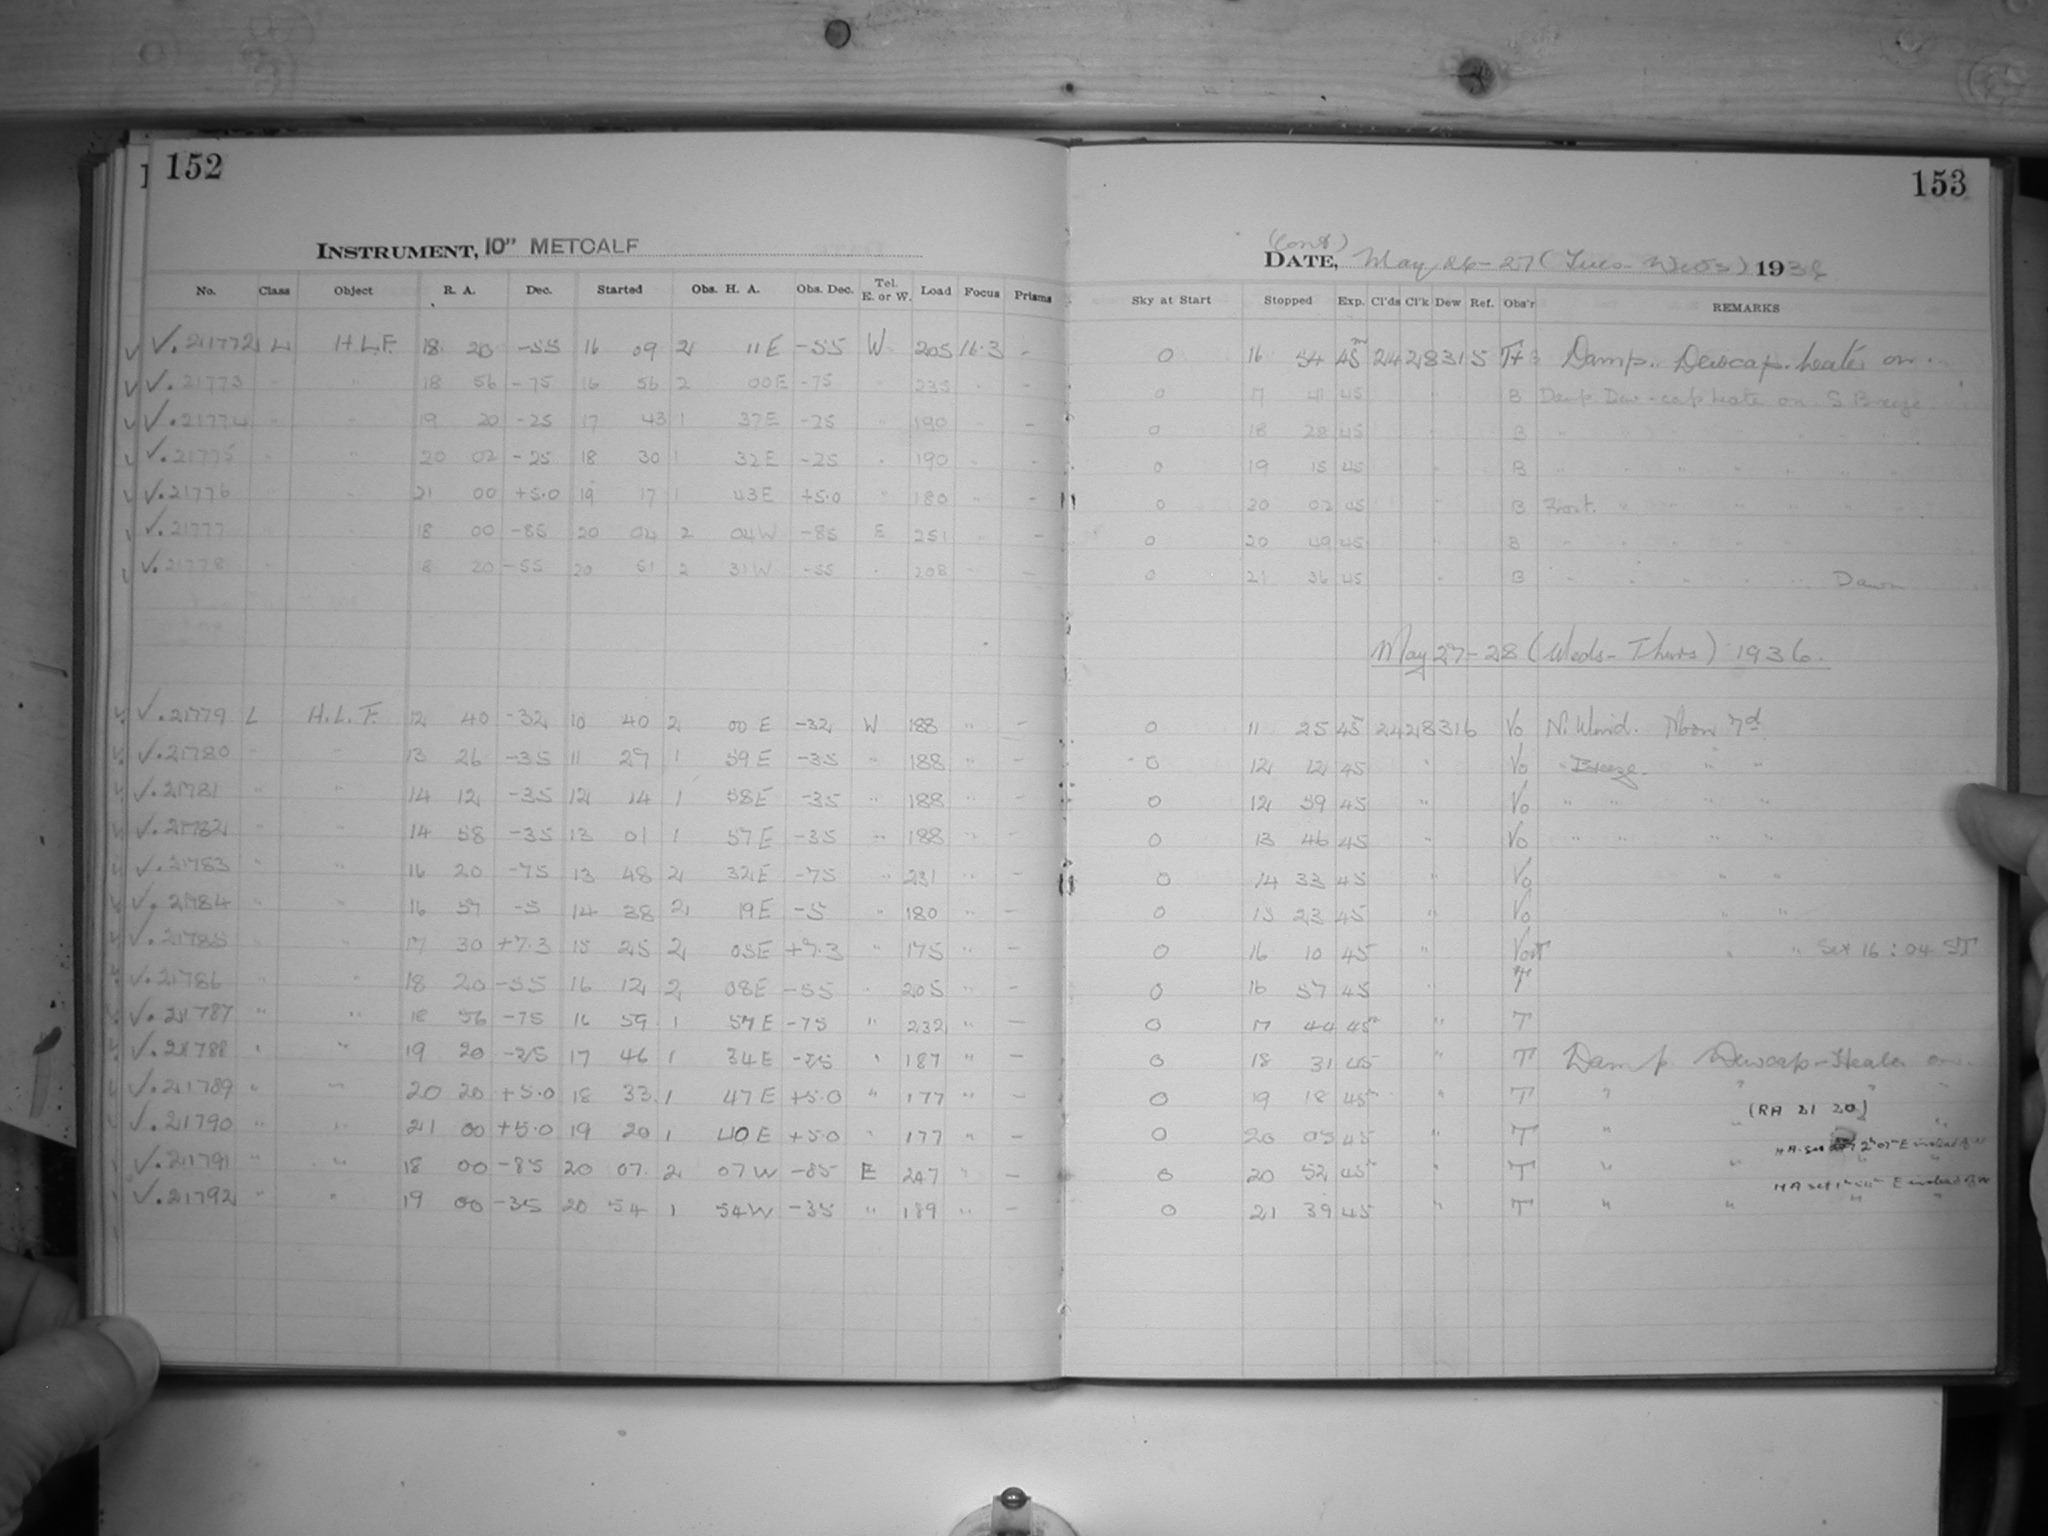 152
INSTRUMENT, 10" METCALF
No. Class Object R. A. Dec. Started Obs. H. A. Obs. Dec. Tel. E. or W. Load Focus Prisms
V.21772 L H.L.F. 18 20 -55 16 09 2 11E -55 W 205 16.3 -
V.21773 " " 18 56 -75 16 56 2 00E -75 " 235 " -
V.21774 " " 19 20 -25 17 43 1 37E -25 " 190 " -
V.21775 " " 20 02 -25 18 30 1 32E -25 " 190 " -
V.21776 " " 21 00 +5.0 19 17 1 43E +5.0 " 180 " -
V.21777 " " 18 00 -85 20 04 2 04W -85 E 251 " -
V.21778 " " 8 20 -55 20 51 2 31W -55 " 208 " -
V.21779 L H.L.F. 12 40 -32 10 40 2 00E -32 W 188 " -
V.21780 " " 13 26 -35 11 27 1 59E -35 " 188 " -
V.21781 " " 14 12 -35 12 14 1 58E -35 " 188 " -
V.21782 " " 14 58 -35 13 01 1 57E -35 " 188 " -
V.21783 " " 16 20 -75 13 48 2 32E -75 " 231 " -
V.21784 " " 16 57 -5 14 38 2 19E -5 " 180 " -
V.21785 " " 17 30 +7.3 15 25 2 05E +7.3 " 175 " -
V.21786 " " 18 20 -55 16 12 2 08E -55 " 205 " -
V.21787 " " 18 56 -75 16 59 1 57E -75 " 232 " -
V.21788 " " 19 20 -25 17 46 1 34E -25 " 187 " -
V.21789 " " 20 20 +5.0 18 33 1 47E +5.0 " 177 " -
V.21790 " " 21 00 +5.0 19 20 1 40E +5.0 " 177 " -
V.21791 " " 18 00 -85 20 07 2 07W -85 E 247 " -
V.21792 " " 19 00 -35 20 54 1 54W -35 " 189 " -
153
(Cont)
DATE, May 26-27 (Tues-Weds) 1936
Sky at Start Stopped Exp. Cl'ds Cl'k Dew Ref. Obs'r REMARKS
0 16 54 45m 24 28 31 5 T+B Damp. Dewcap heater on.
0 17 41 45 " B Damp Dew-cap heater on S Breeze
0 18 28 45 " B " " " " " "
0 19 15 45 " B " " " " " "
0 20 02 45 " B Frost. " " " " "
0 20 49 45 " B " " " " " "
0 21 36 45 " B " " " " Dawn
May 27-28 (Weds-Thurs) 1936.
0 11 25 45 24 28 31 6 Vo N. Wind. Moon 7d
0 12 12 45 " Vo " Breeze. " "
0 12 59 45 " Vo " " " "
0 13 46 45 " Vo " " " "
0 14 33 45 " Vo " "
0 15 23 45 " Vo " "
0 16 10 45 " Vo+T " " Set 16:04 ST
0 16 57 45 " T
0 17 44 45 " T
0 18 31 45 " T Damp Dewcap-Heater on.
0 19 18 45 " T " " " "
(RA 21 20)
0 20 05 45 " T " " "
H A set 2h 07m E instead of W
0 20 52 45 " T " " " "
H A set 1h 54m E instead of W
0 21 39 45 " T " " " "